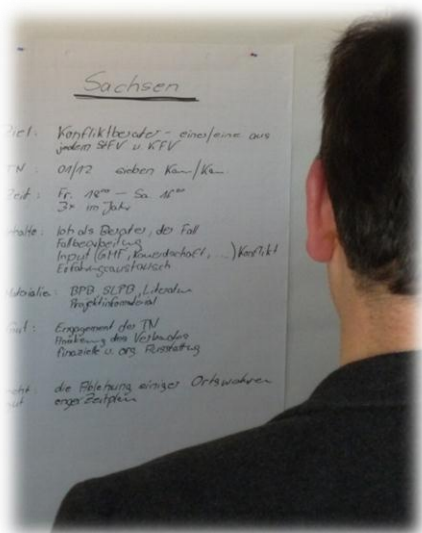 Sachsen
Ziel: Konfliktberater - eines/eine aus
jedem StFV u. KFV
TN: 01/12 sieben Kam/Kam
Zeit: Fr. 18⁰⁰ - Sa. 16⁰⁰
3x im Jahr
halte: Ich als Berater, der Fall
Fallbearbeitung
Input (GMF, Kameradschaft, ...) Konflikt
Erfahrungsaustausch
aterialie: BPB, SLPB, Literatur
Projektinfomaterial
Gut: Engagement der TN
des Verbandes
finanziele u. org. Ausstattung
cht: die Ablehnung einiges Ortswehren
ut enger Zeitplan